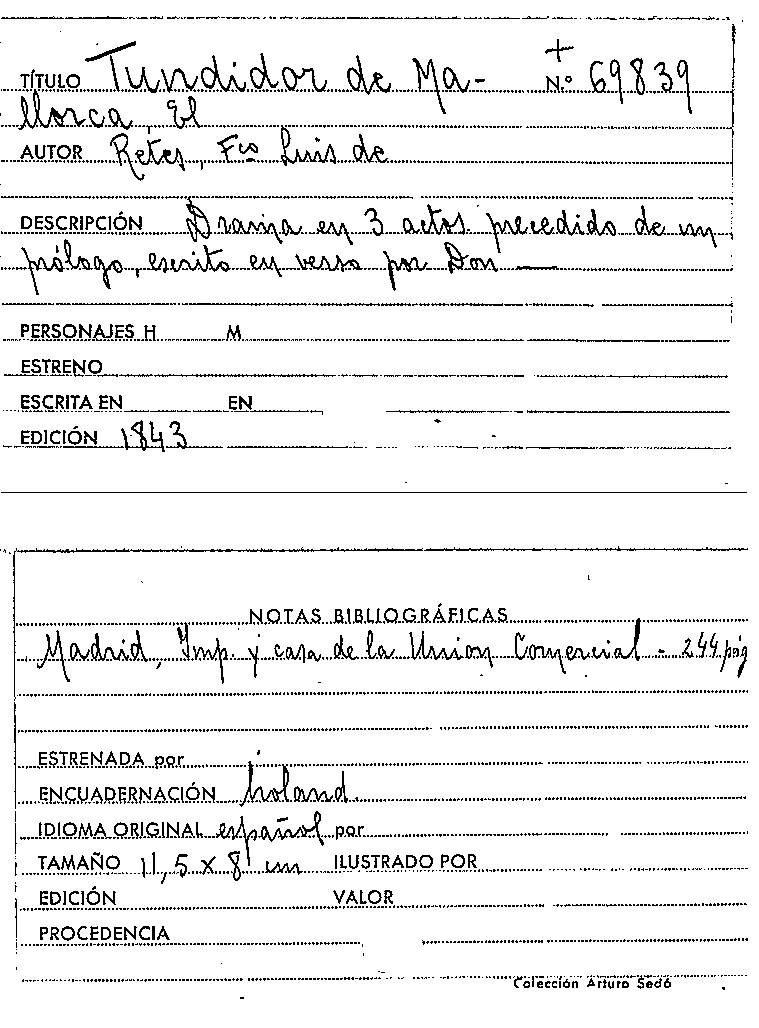 TÍTULO Tundidor de Ma- + N.º 69839
llorca, El
AUTOR Retes, Fco Luis de
DESCRIPCIÓN Drama en 3 actos precedido de un
prólogo, escrito en verso por Don —
PERSONAJES H M
ESTRENO
ESCRITA EN EN
EDICIÓN 1843
NOTAS BIBLIOGRÁFICAS
Madrid, Imp. y casa de la Union Comercial - 244 pág
ESTRENADA por
ENCUADERNACIÓN holand.
IDIOMA ORIGINAL español por
TAMAÑO 11,5 x 8 cm ILUSTRADO POR
EDICIÓN VALOR
PROCEDENCIA
Colección Arturo Sedó